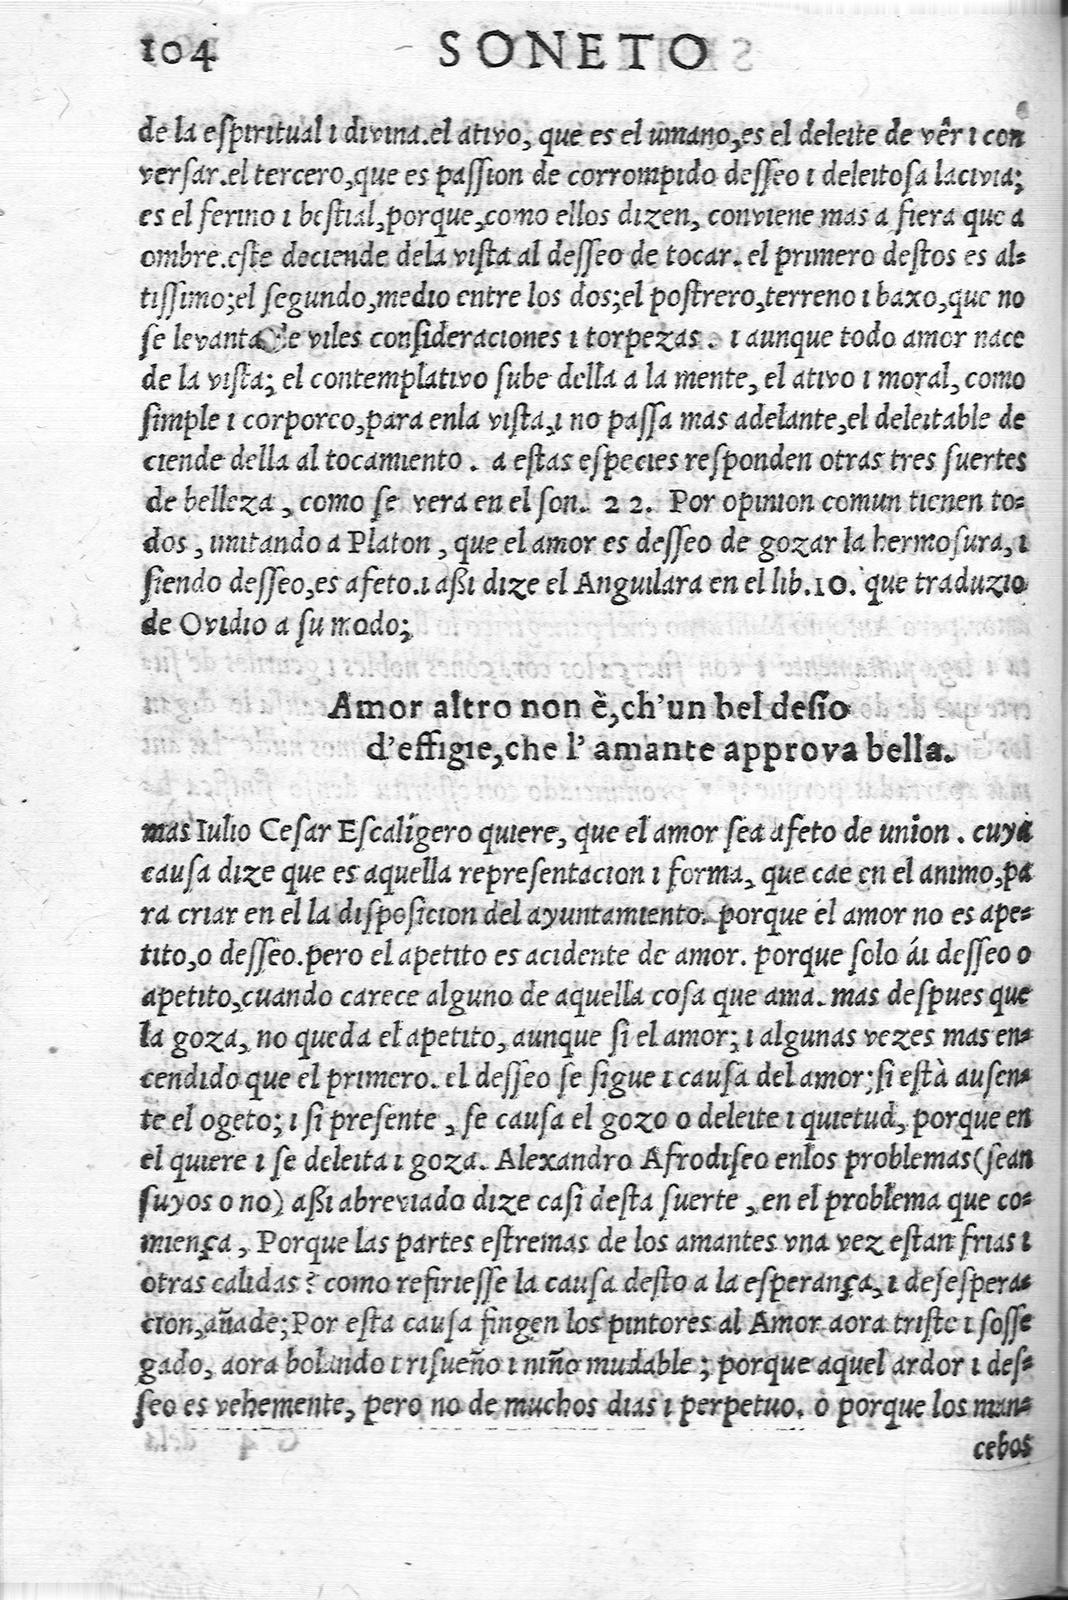 104 SONETO
de la eſpiritual i divina.el ativo, que es el umano,es el deleite de vêr i con
verſar.el tercero,que es paſſion de corrompido deſſeo i deleitoſa lacivia;
es el ferino i beſtial,porque,como ellos dizen, conviene mas a fiera que a
ombre.eſte deciende dela viſta al deſſeo de tocar. el primero deſtos es al-
tiſſimo;el ſegundo,medio entre los dos;el poſtrero,terreno i baxo,que no
ſe levanta de viles conſideraciones i torpezas. i aunque todo amor nace
de la viſta; el contemplativo ſube della a la mente, el ativo i moral, como
ſimple i corporeo,para enla viſta,i no paſſa mas adelante,el deleitable de
ciende della al tocamiento. a eſtas eſpecies reſponden otras tres ſuertes
de belleza, como ſe vera en el ſon. 22. Por opinion comun tienen to-
dos, imitando a Platon, que el amor es deſſeo de gozar la hermoſura, i
ſiendo deſſeo,es afeto.i aßi dize el Anguilara en el lib.10. que traduzio
de Ovidio a ſu modo;
Amor altro non è,ch'un bel deſio
d'effigie,che l' amante approva bella.
mas Iulio Ceſar Eſcalígero quiere, que el amor ſea afeto de union. cuya
cauſa dize que es aquella repreſentacion i forma, que cae en el animo,pa
ra criar en el la diſpoſicion del ayuntamiento. porque el amor no es ape-
tito,o deſſeo.pero el apetito es acidente de amor. porque ſolo ái deſſeo o
apetito,cuando carece alguno de aquella coſa que ama. mas deſpues que
la goza, no queda el apetito, aunque ſi el amor; i algunas vezes mas en-
cendido que el primero. el deſſeo ſe ſigue i cauſa del amor;ſi eſtà auſen-
te el ogeto; i ſi preſente, ſe cauſa el gozo o deleite i quietud, porque en
el quiere i ſe deleita i goza. Alexandro Afrodiſeo enlos problemas(ſean
ſuyos o no) aßi abreviado dize caſi deſta ſuerte, en el problema que co-
miença, Porque las partes eſtremas de los amantes vna vez eſtan frias i
otras calidas? como refirieſſe la cauſa deſto a la eſperança, i deſeſpera-
cion,añade;Por eſta cauſa fingen los pintores al Amor aora triſte i ſoſſe
gado, aora bolando i riſueño i niño mudable; porque aquel ardor i deſ-
ſeo es vehemente, pero no de muchos dias i perpetuo. o porque los man-
cebos